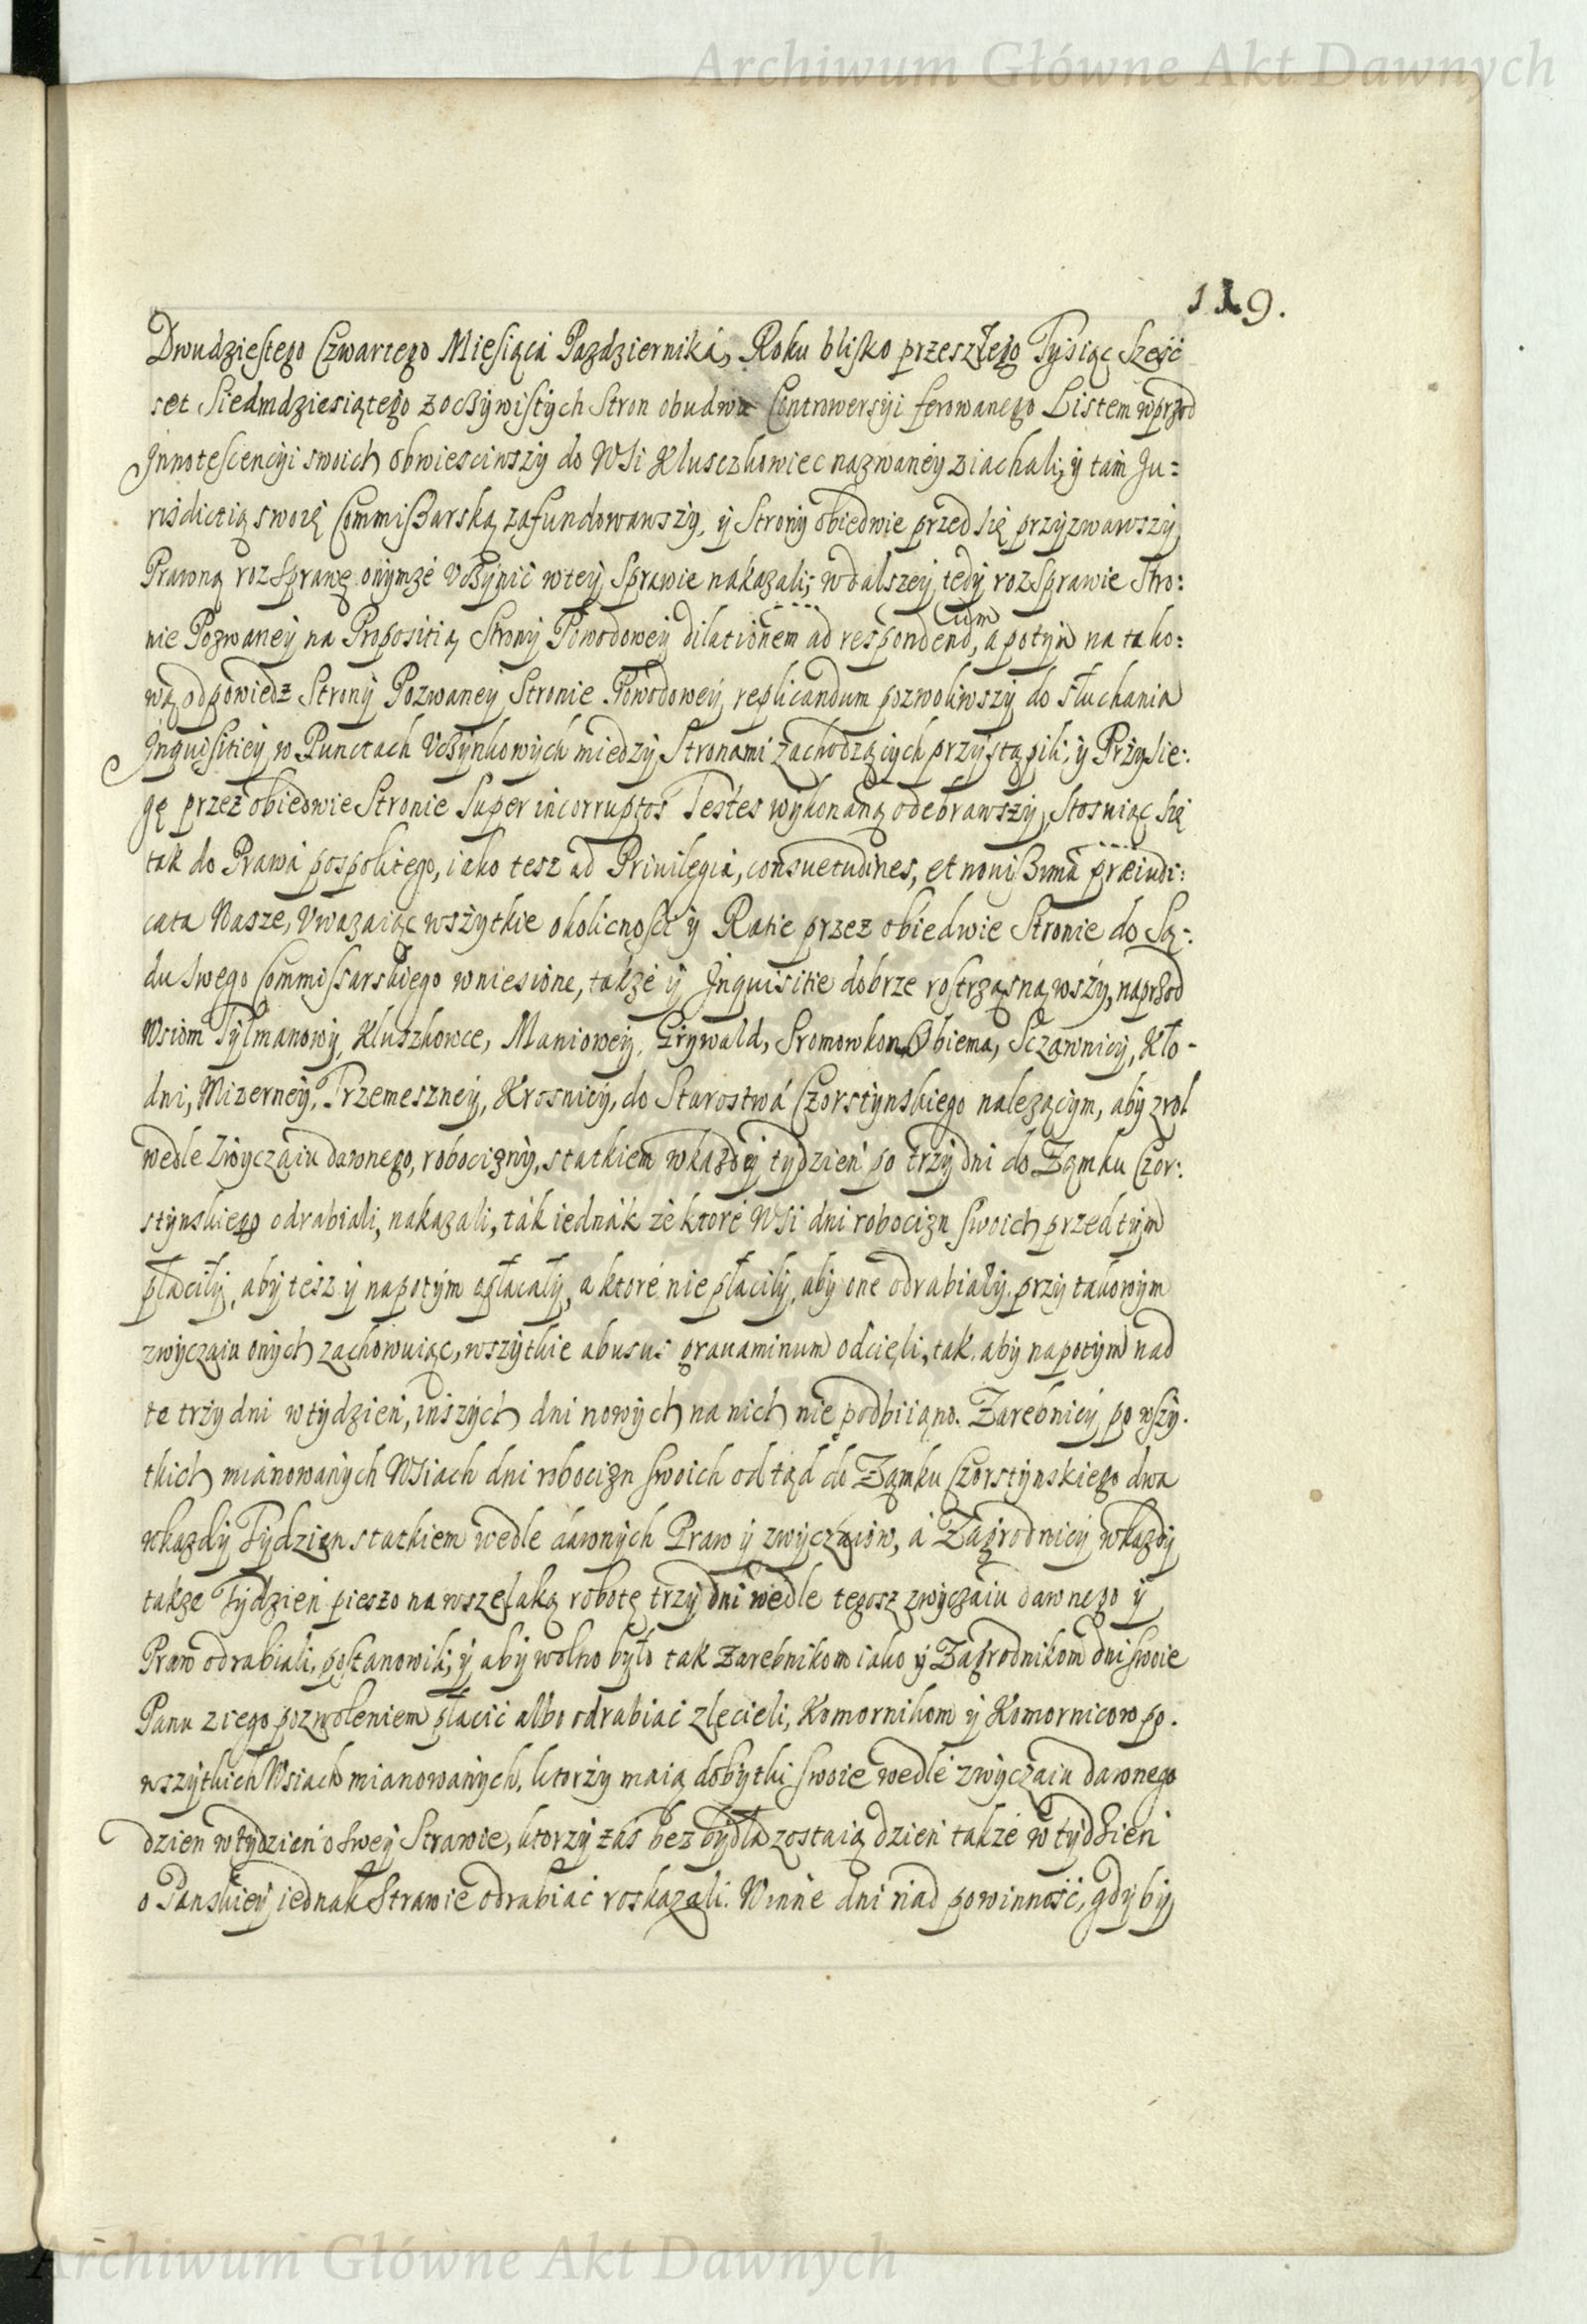 Archiwum Główne Akt Dawnych
119.
Dwudziestego Czwartego Miesiąca Pazdziernika, Roku blisko przeszłego Tysiąc Sześć
set Siedmdziesiątego z oczywistych Stron obudwu Controwersyi ferowanego Listem wprzod
Innotescencyi swoich obwiesciwszy do WSi Kluszkowiec nazwaney ziachali; y tam Ju=
risdictią swoię Commissarską zafundowawszy, y Strony obiedwie przed się przyzwawszy
Prawną rozsprawę onymże uczynić w tey Sprawie nakazali; w dalszey tedy rozsprawie Stro:
nie Pozwaney na Propositią Strony Powodowey dilationem ad respondendum, a potym na tako:
wą odpowiedz Strony Pozwaney Stronie Powodowey replicandum pozwoliwszy do słuchania
Inquisitiey w Punctach Uczynkowych miedzy Stronami zachodzących przystąpili, y Przysie:
gę przez obiedwie Stronie Super incorruptos Testes wykonaną odebrawszy, Stosuiąc się
tak do Prawa pospolitego, iako tesz ad Priuilegia, consuetudines, et nouissima præiudi:
cata Nasze, Uwazaiąc wszytkie okolicnosci y Ratie przez obiedwie Stronie do Są:
du swego Commissarskiego wniesione, także y Inquisitie dobrze rostrząsnąwszy, naprzod
Wsiom Tylmanowy, Kluszkowce, Maniowey, Grywald, Sromowkom Obiema, Sczawnicy, Kło-
dni, Mizerney, Przemeszney, Krosnicy, do Starostwa Czorstynskiego nalezącym, aby z rol
wedle zwyczaiu dawnego, robocizny, statkiem w kazdy tydzień po trzy dni do Zamku Czor:
stynskiego odrabiali, nakazali, tak iednak że ktore WSi dni robocizn swoich przed tym
płaciły, aby tesz y napotym opłacały, a ktore nie płaciły, aby one odrabiały. przy takowym
zwyczaiu onych zachowuiąc, wszytkie abusus grauaminum odcięli, tak. aby napotym nad
te trzy dni w tydzień, inszych dni nowych na nich nie podbiiano. Zarebnicy po wszy.
tkich mianowanych WSiach dni robocizn swoich od tąd do Zamku Czorstynskiego dwa
w kazdy Tydzien statkiem wedle dawnych Praw y zwyczaiow, a Zagrodnicy w kazdy
takze Tydzień pieszo na wszelaką robotę trzy dni wedle tegosz zwyczaiu dawnego y
Praw odrabiali, postanowili; y aby wolno było tak Zarebnikom iako y Zagrodnikom dni swoie
Panu z iego pozwoleniem płacić albo odrabiać zlecieli, Komornikom y Komornicom po.
wszytkich Wsiach mianowanych, ktorzy maią dobytki swoie wedle zwyczaiu dawnego
dzien w tydzień o swey Strawie, ktorzy zas bez bydła zostaią dzień także w tydzień
o Panskiey iednak Strawie odrabiać roskazali. Winne dni nad powinność, gdyby
Archiwum Główne Akt Dawnych